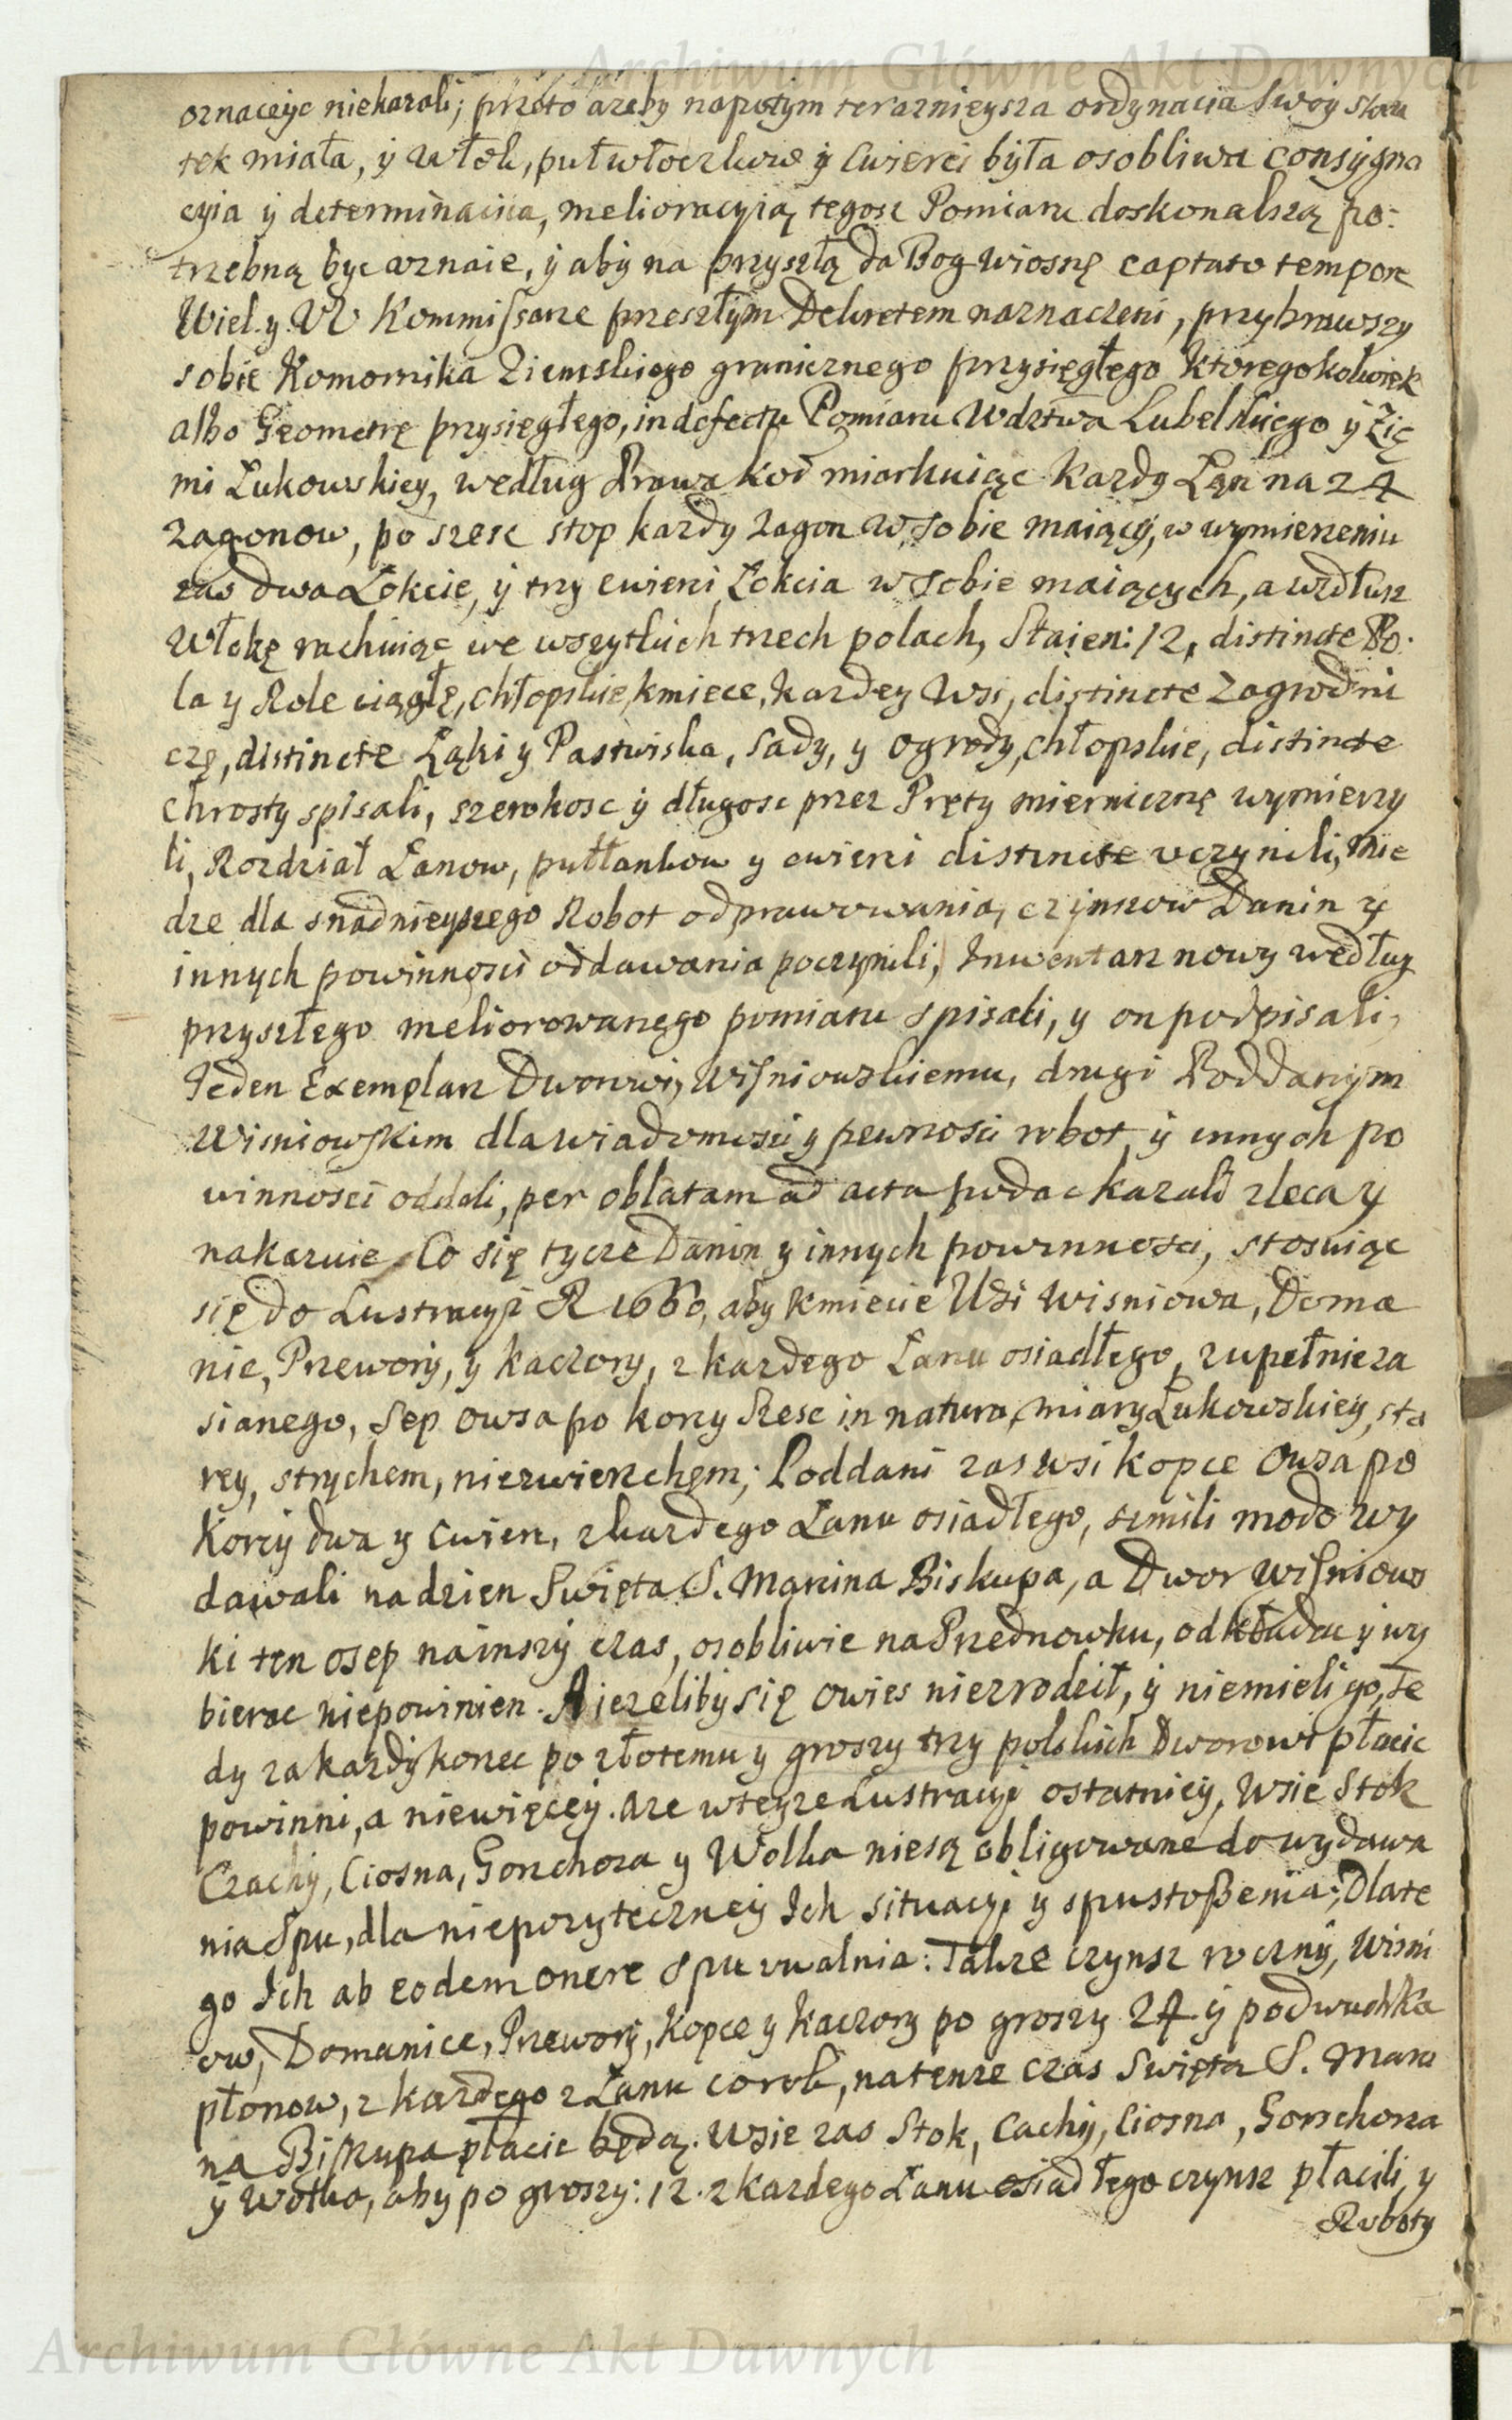 Archiwum Główne Akt Dawnych
oznaczyc niekazali; przeto azeby napotym teraznieysza ordynacia swoy sku
tek miała, ÿ włok, puł włoczkow ÿ cwierci była osobliwa consÿgna
cyia ÿ determinacÿia, melioracyią tegosz Pomiaru doskonalszą po:
trzebną byc uznaie, ÿ aby na przyszłą da Bog wiosnę captato tempore
Wiel. y. Ur Kommissarze przeszłym Dekretem naznaczeni, przybrawszy
sobie Komornika Ziemskiego granicznego przysięgłego ktoregokolwiek
albo Geometrę przysięgłego, in defectu Pomiaru Wdztwa Lubelskiego ÿ Zie
mi Łukowskiey, według Prawa kod miarkuiąc kazdy Łan na 24
zagonow, po szesc stop kazdy zagon w sobie maiący, w wymierzeniu
zas dwa Łokcie, ÿ trzy cwierci Łokcia w sobie maiących, a wzdłusz
Włokę rachuiąc we wszytkich trzech polach, Staien: 12, distincte Po:
la y Role ciągłe, chłopskie, kmiece, kazdey Wsi, distincte zagrodni
cze, distincte Łąki y Pastwiska, Sady, y ogrody, chłopskie, distincte
chrosty spisali, szerokosc ÿ długosc przez Pręty miernicze wymierzy
li, Rozdział Łanow, pułłankow y cwierci distincte uczynili, mie
dze dla snadnieyszego Robot odprawowania, czynszow Danin y
innych powinnosci oddawania poczynili, Inwentarz nowy według
przyszłego meliorowanego pomiaru spisali, y on podpisali,
Jeden Exemplarz Dworowi, Wisniowskiemu, drugi Poddanym
Wisniowskim dla wiadomosci y pewnosci robot, ÿ innych po
winnosci oddali, per oblatam ad acta podac kazali zleca y
nakazuie. Co się tycze Danin y innych powinnosci, stosuiąc
się do Lustracyi R 1660, aby kmiecie Wsi Wisniowa, Doma
nic, Przewory, y Kaczory, z kazdego Łanu osiadłego, zupełnie za
sianego, Sep owsa po korcy szesc in natura, miary Łukowskiey, sta
rey, strychem, niezwierzchem; Poddani zas wsi kopce owsa po
Korcy dwa y cwierc, z kazdego Łanu osiadłego, simili modo wy
dawali na dzien Swięta S. Marcina Biskupa, a Dwor Wisniows
ki ten osep na inszy czas, osobliwie na Przednowku, odkładac ÿ wy
bierac niepowinien. A iezeliby się owies niezrodził, ÿ niemieli go, te
dy za kazdy korzec po złotemu y groszy trzy polskich Dworowi płacic
powinni, a niewięcey. Aze w teyze Lustracyi ostatniey, Wsie Stok
Czachy, Ciosna, Gorchoza y Wolka niesą obligowane do wydawa
nia Spu, dla niepozyteczney Ich situacyi y spustoszenia; Dlate
go Ich ab eodem onere Spu uwalnia: Takze czynsz roczny, Wisni
ow, Domanice, Przewory, Kopce y Kaczory po groszy 24 ÿ po dwuch ka
płonow, z kazdego z Łanu corok, na tenze czas Swięta S. Marci
na Biskupa płacic będą. Wsie zas Stok, Cachy, Ciosna, Gorschoza
ÿ Wolka, aby po groszy: 12. z kazdego Łanu osiadłego czynsz płacili, y
Roboty
Archiwum Główne Akt Dawnych